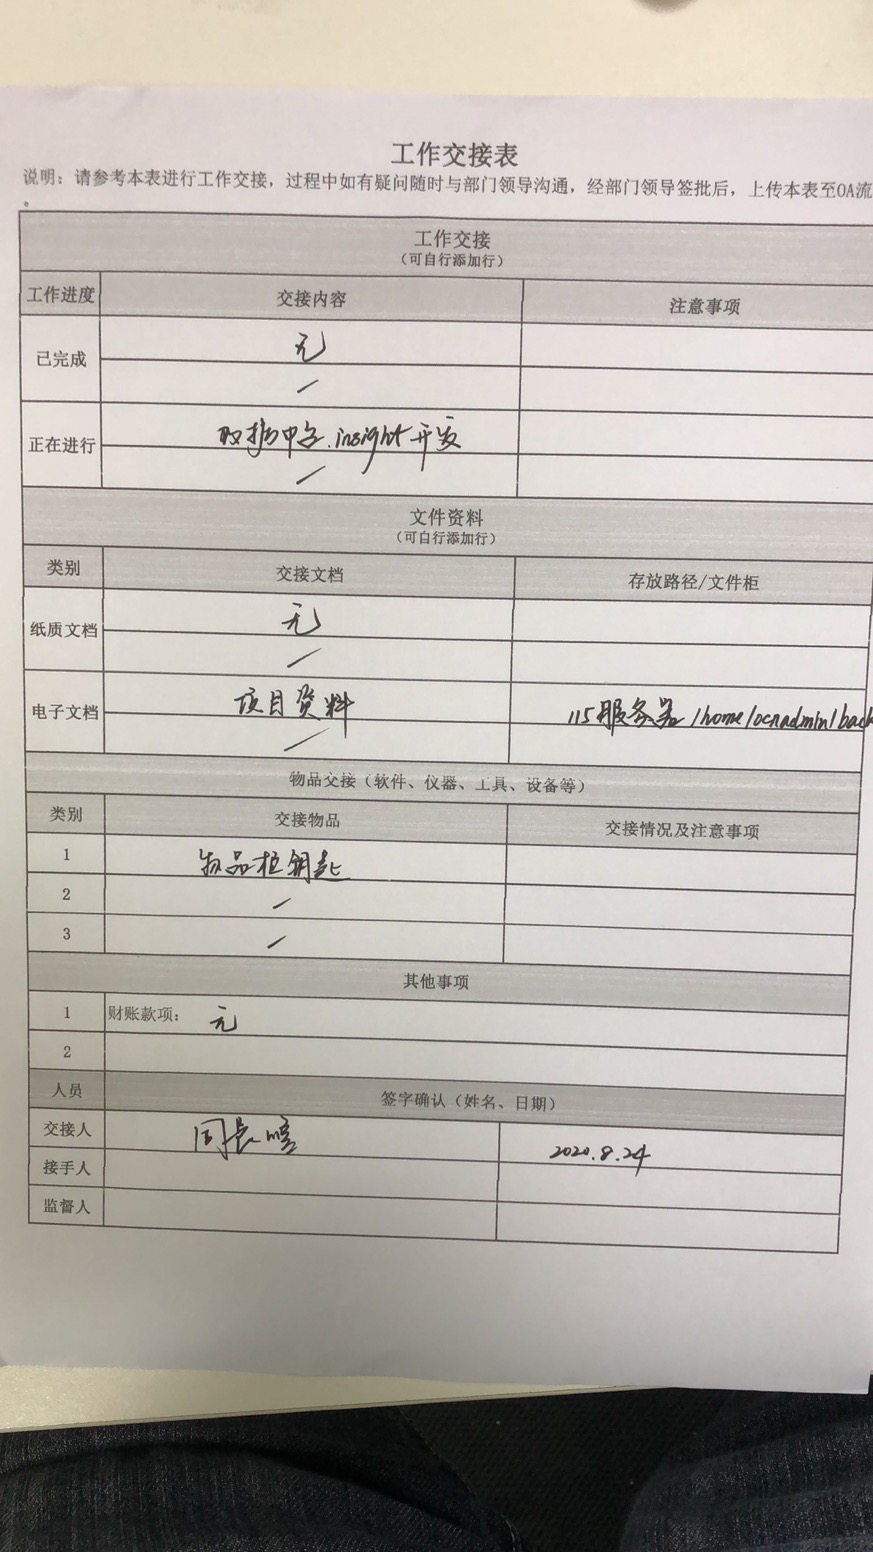 工作交接表
说明：请参考本表进行工作交接，过程中如有疑问随时与部门领导沟通，经部门领导签批后，上传本表至OA流
。
工作交接
（可自行添加行）
工作进度 交接内容 注意事项
已完成 无
/
正在进行 数据中台.insight开发
/
文件资料
（可自行添加行）
类别 交接文档 存放路径/文件柜
纸质文档 无
/
电子文档 项目资料 115服务器/home/ocnadmin/back
/
物品交接（软件、仪器、工具、设备等）
类别 交接物品 交接情况及注意事项
1 物品柜钥匙
2 /
3 /
其他事项
1 财账款项： 无
2
人员 签字确认（姓名、日期）
交接人 2020.8.24
接手人
监督人